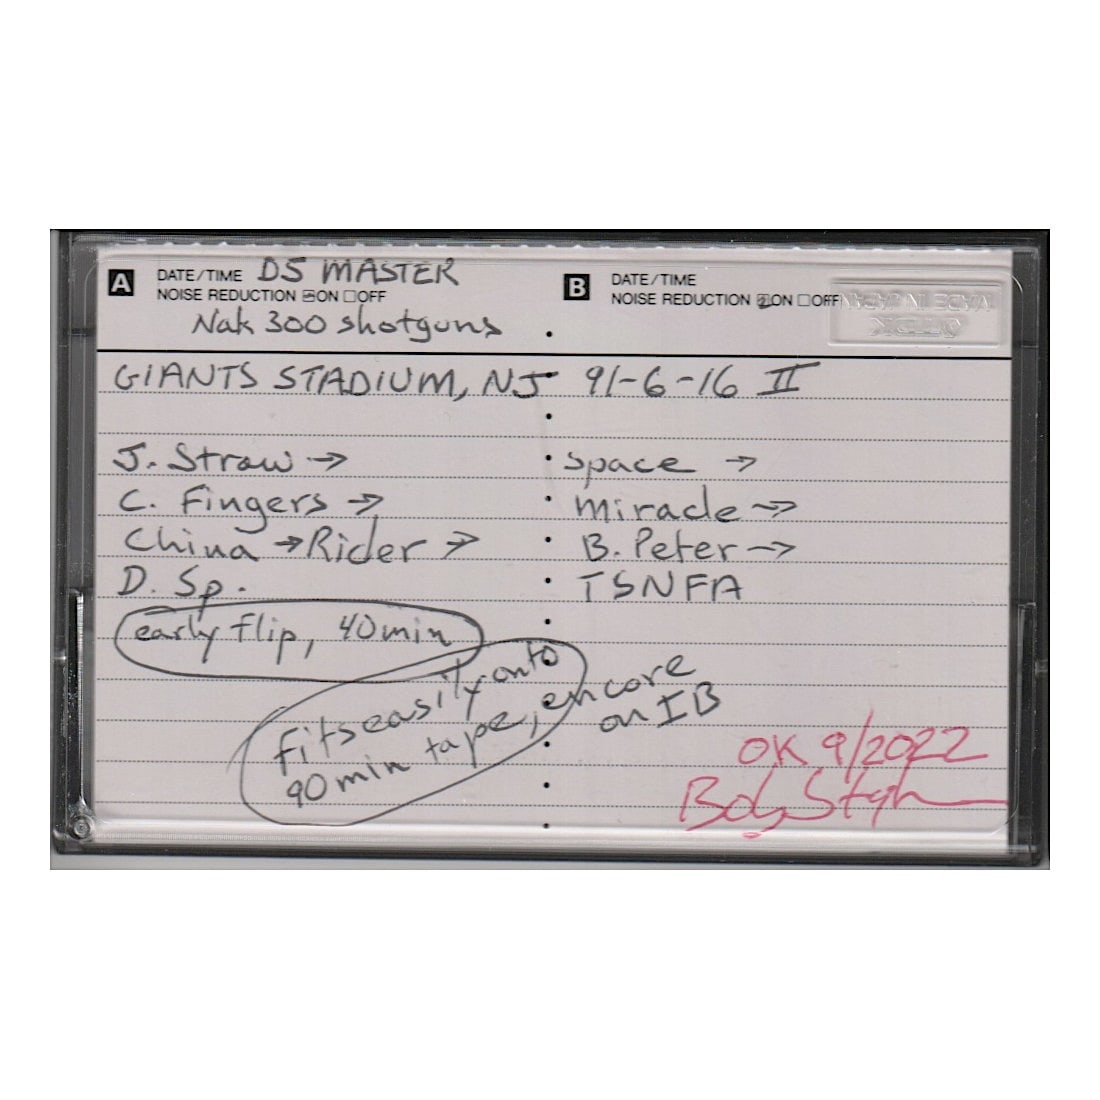 A DATE/TIME D5 MASTER
NOISE REDUCTION ☑ON ☐OFF
Nak 300 shotguns
B DATE/TIME
NOISE REDUCTION ☑ON ☐OFF
MADE IN JAPAN
TDK
GIANTS STADIUM, NJ 91-6-16 II
J. Straw →
C. Fingers →
China → Rider →
D. Sp.
early flip, 40 min
fits easily onto
90 min tape, encore
on I B
space →
Miracle →
B. Peter →
TSNFA
OK 9/2022
Bob